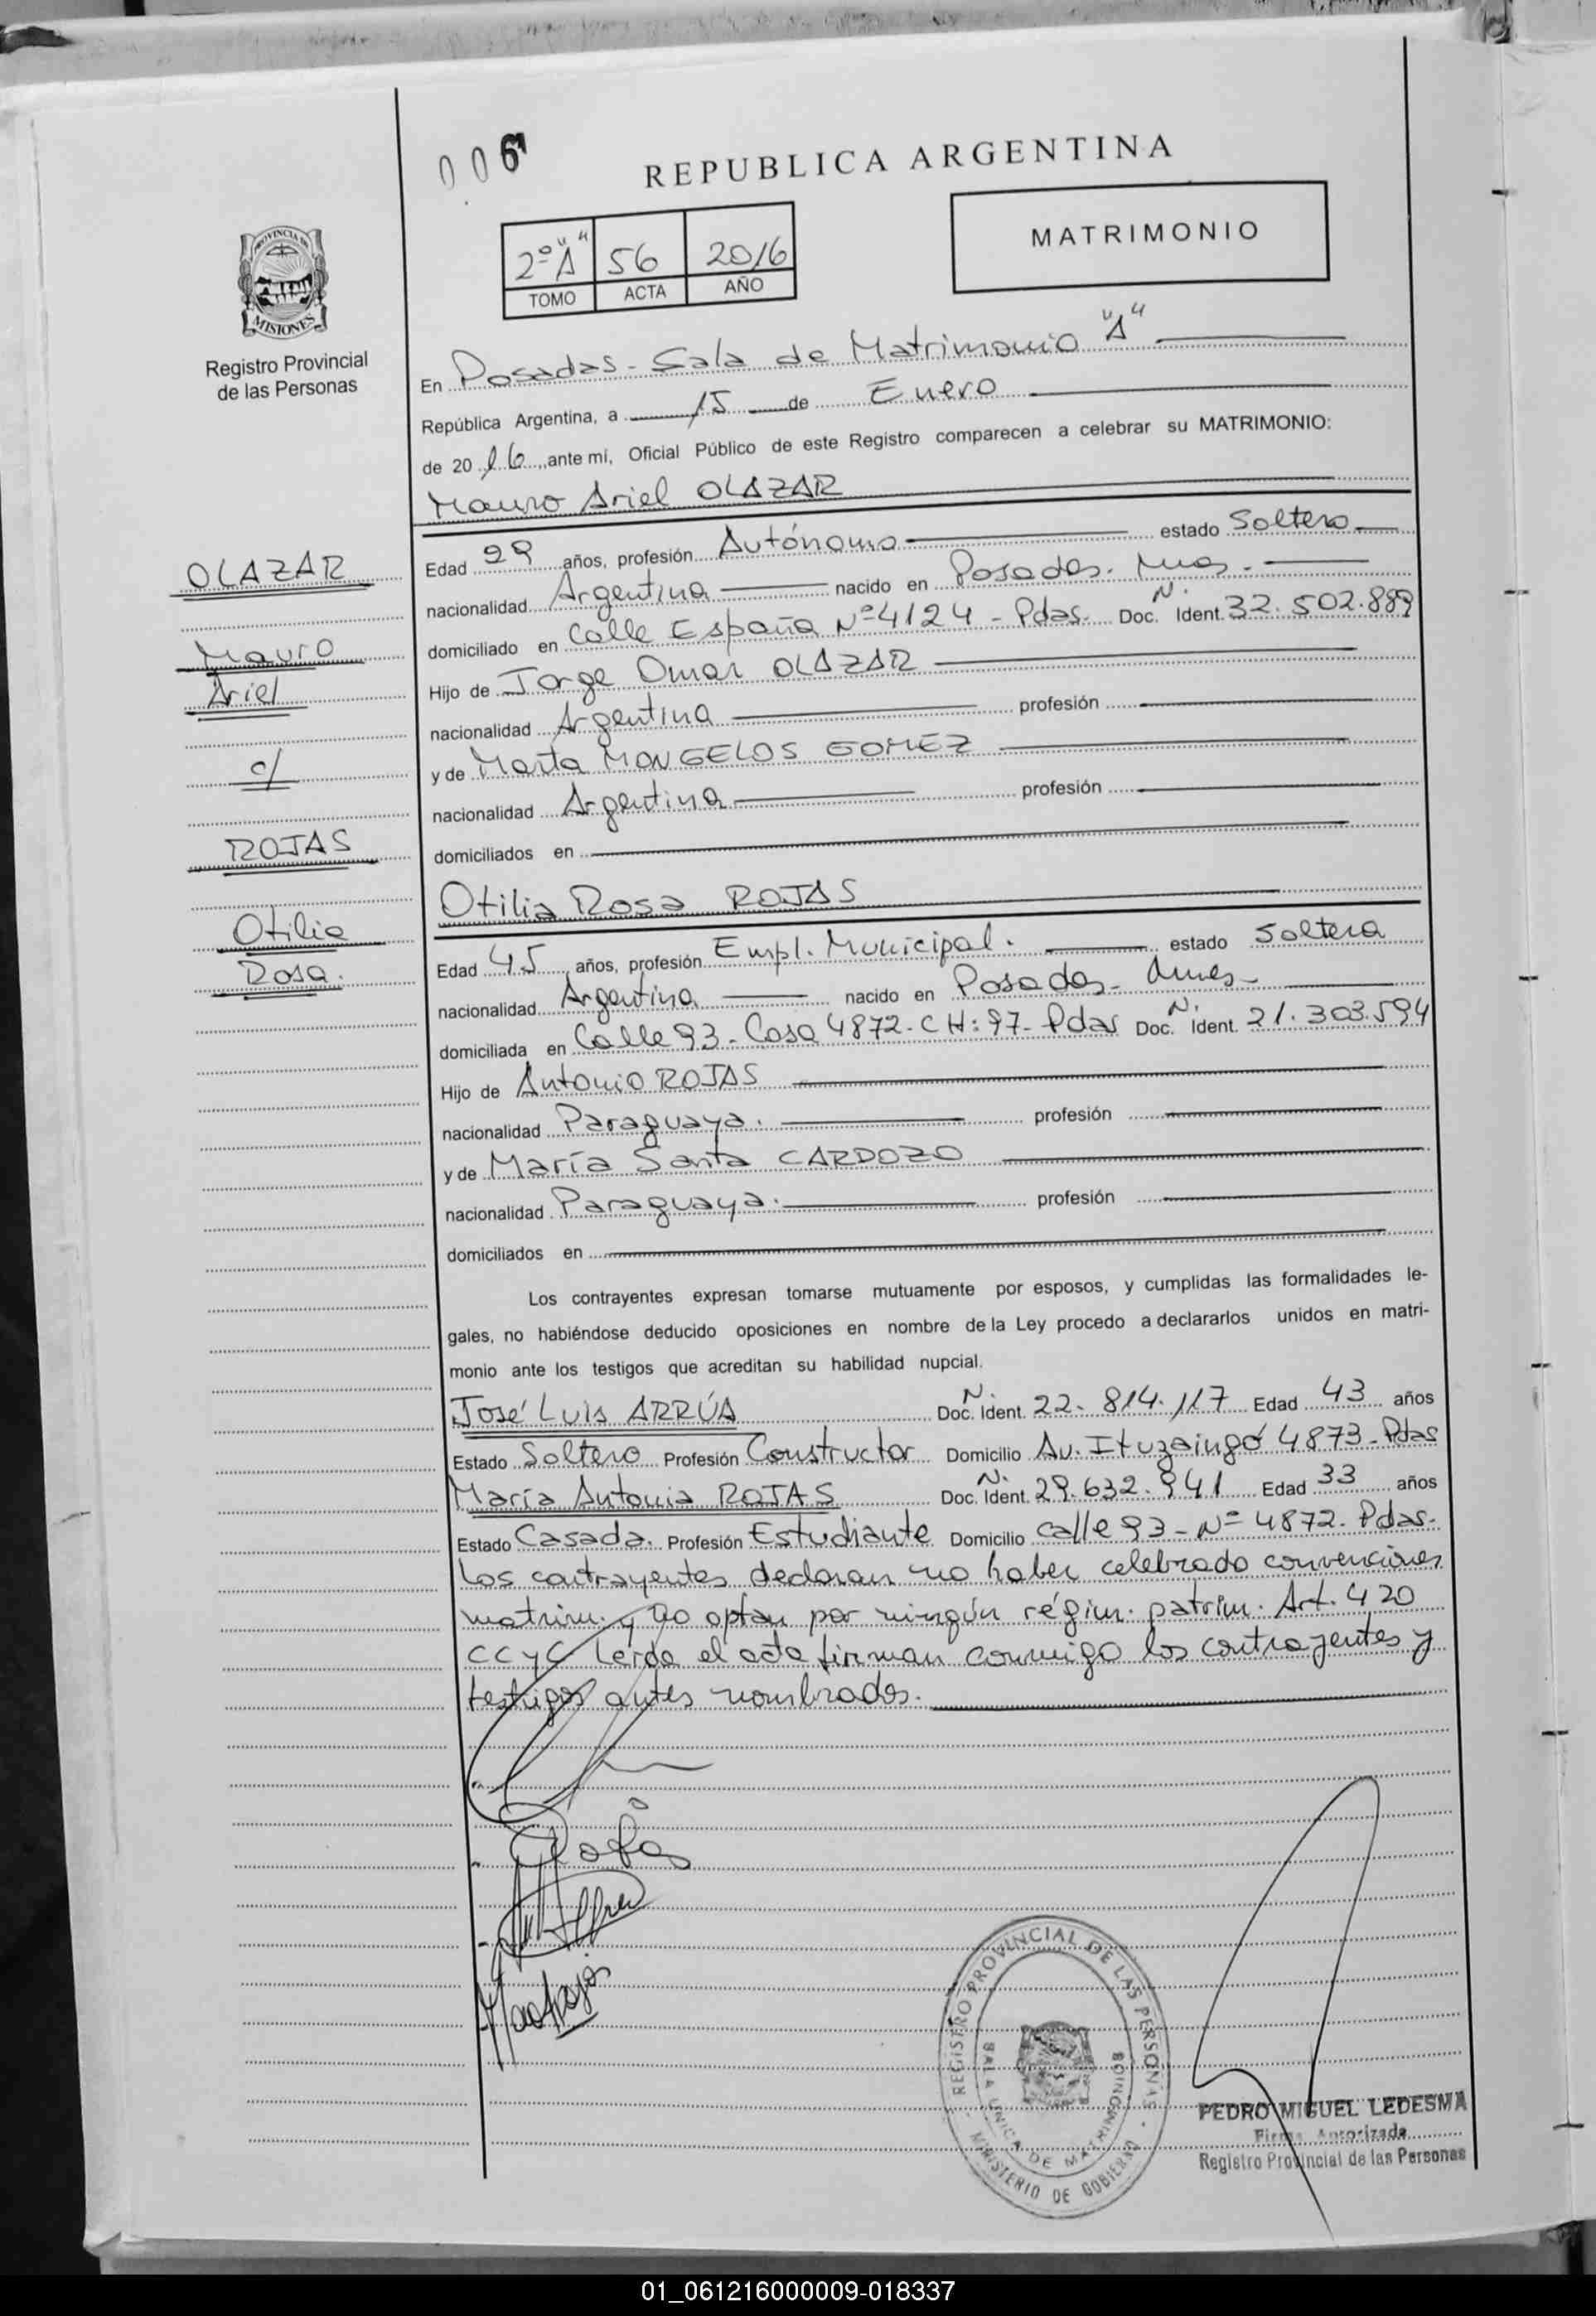 006
REPUBLICA ARGENTINA
2º "A" 56 2016
TOMO ACTA AÑO
MATRIMONIO
PROVINCIA DE
MISIONES
Registro Provincial
de las Personas
En Posadas - Sala de Matrimonio "A"
República Argentina, a 15 de Enero
de 2016, ante mi, Oficial Público de este Registro comparecen a celebrar su MATRIMONIO:
Mauro Ariel OLAZAR
OLAZAR
Mauro
Ariel
c/
ROJAS
Otilia
Rosa.
Edad 29 años, profesión Autónomo estado Soltero
nacionalidad Argentina nacido en Posadas. Mnes.
domiciliado en Calle España Nº 4124 - Pdas. Doc. N. Ident. 32.502.889
Hijo de Jorge Omar OLAZAR
nacionalidad Argentina profesión
y de Marta MONGELOS GOMEZ
nacionalidad Argentina profesión
domiciliados en
Otilia Rosa ROJAS
Edad 45 años, profesión Empl. Municipal. estado Soltera
nacionalidad Argentina nacido en Posadas - Mnes -
domiciliada en Calle 93 - Casa 4872 - CH: 97 - Pdas Doc. N. Ident. 21.303.594
Hijo de Antonio ROJAS
nacionalidad Paraguaya. profesión
y de María Santa CARDOZO
nacionalidad Paraguaya. profesión
domiciliados en
Los contrayentes expresan tomarse mutuamente por esposos, y cumplidas las formalidades le-
gales, no habiéndose deducido oposiciones en nombre de la Ley procedo a declararlos unidos en matri-
monio ante los testigos que acreditan su habilidad nupcial.
José Luis ARRÚA Doc. N. Ident. 22.814.117 Edad 43 años
Estado Soltero Profesión Constructor Domicilio Av. Ituzaingó 4873 - Pdas
María Antonia ROJAS Doc. N. Ident. 29.632.941 Edad 33 años
Estado Casada. Profesión Estudiante Domicilio calle 93 - Nº 4872 - Pdas.
Los contrayentes declaran no haber celebrado convenciones
matrim. y no optan por ningún régim. patrim. Art. 420
CCyC Leída el acta firman conmigo los contrayentes y
testigos antes nombrados.
REGISTRO PROVINCIAL DE LAS PERSONAS
SALA UNICA DE MATRIMONIOS
MINISTERIO DE GOBIERNO
PEDRO MIGUEL LEDESMA
Firma Autorizada
Registro Provincial de las Personas
01_061216000009-018337